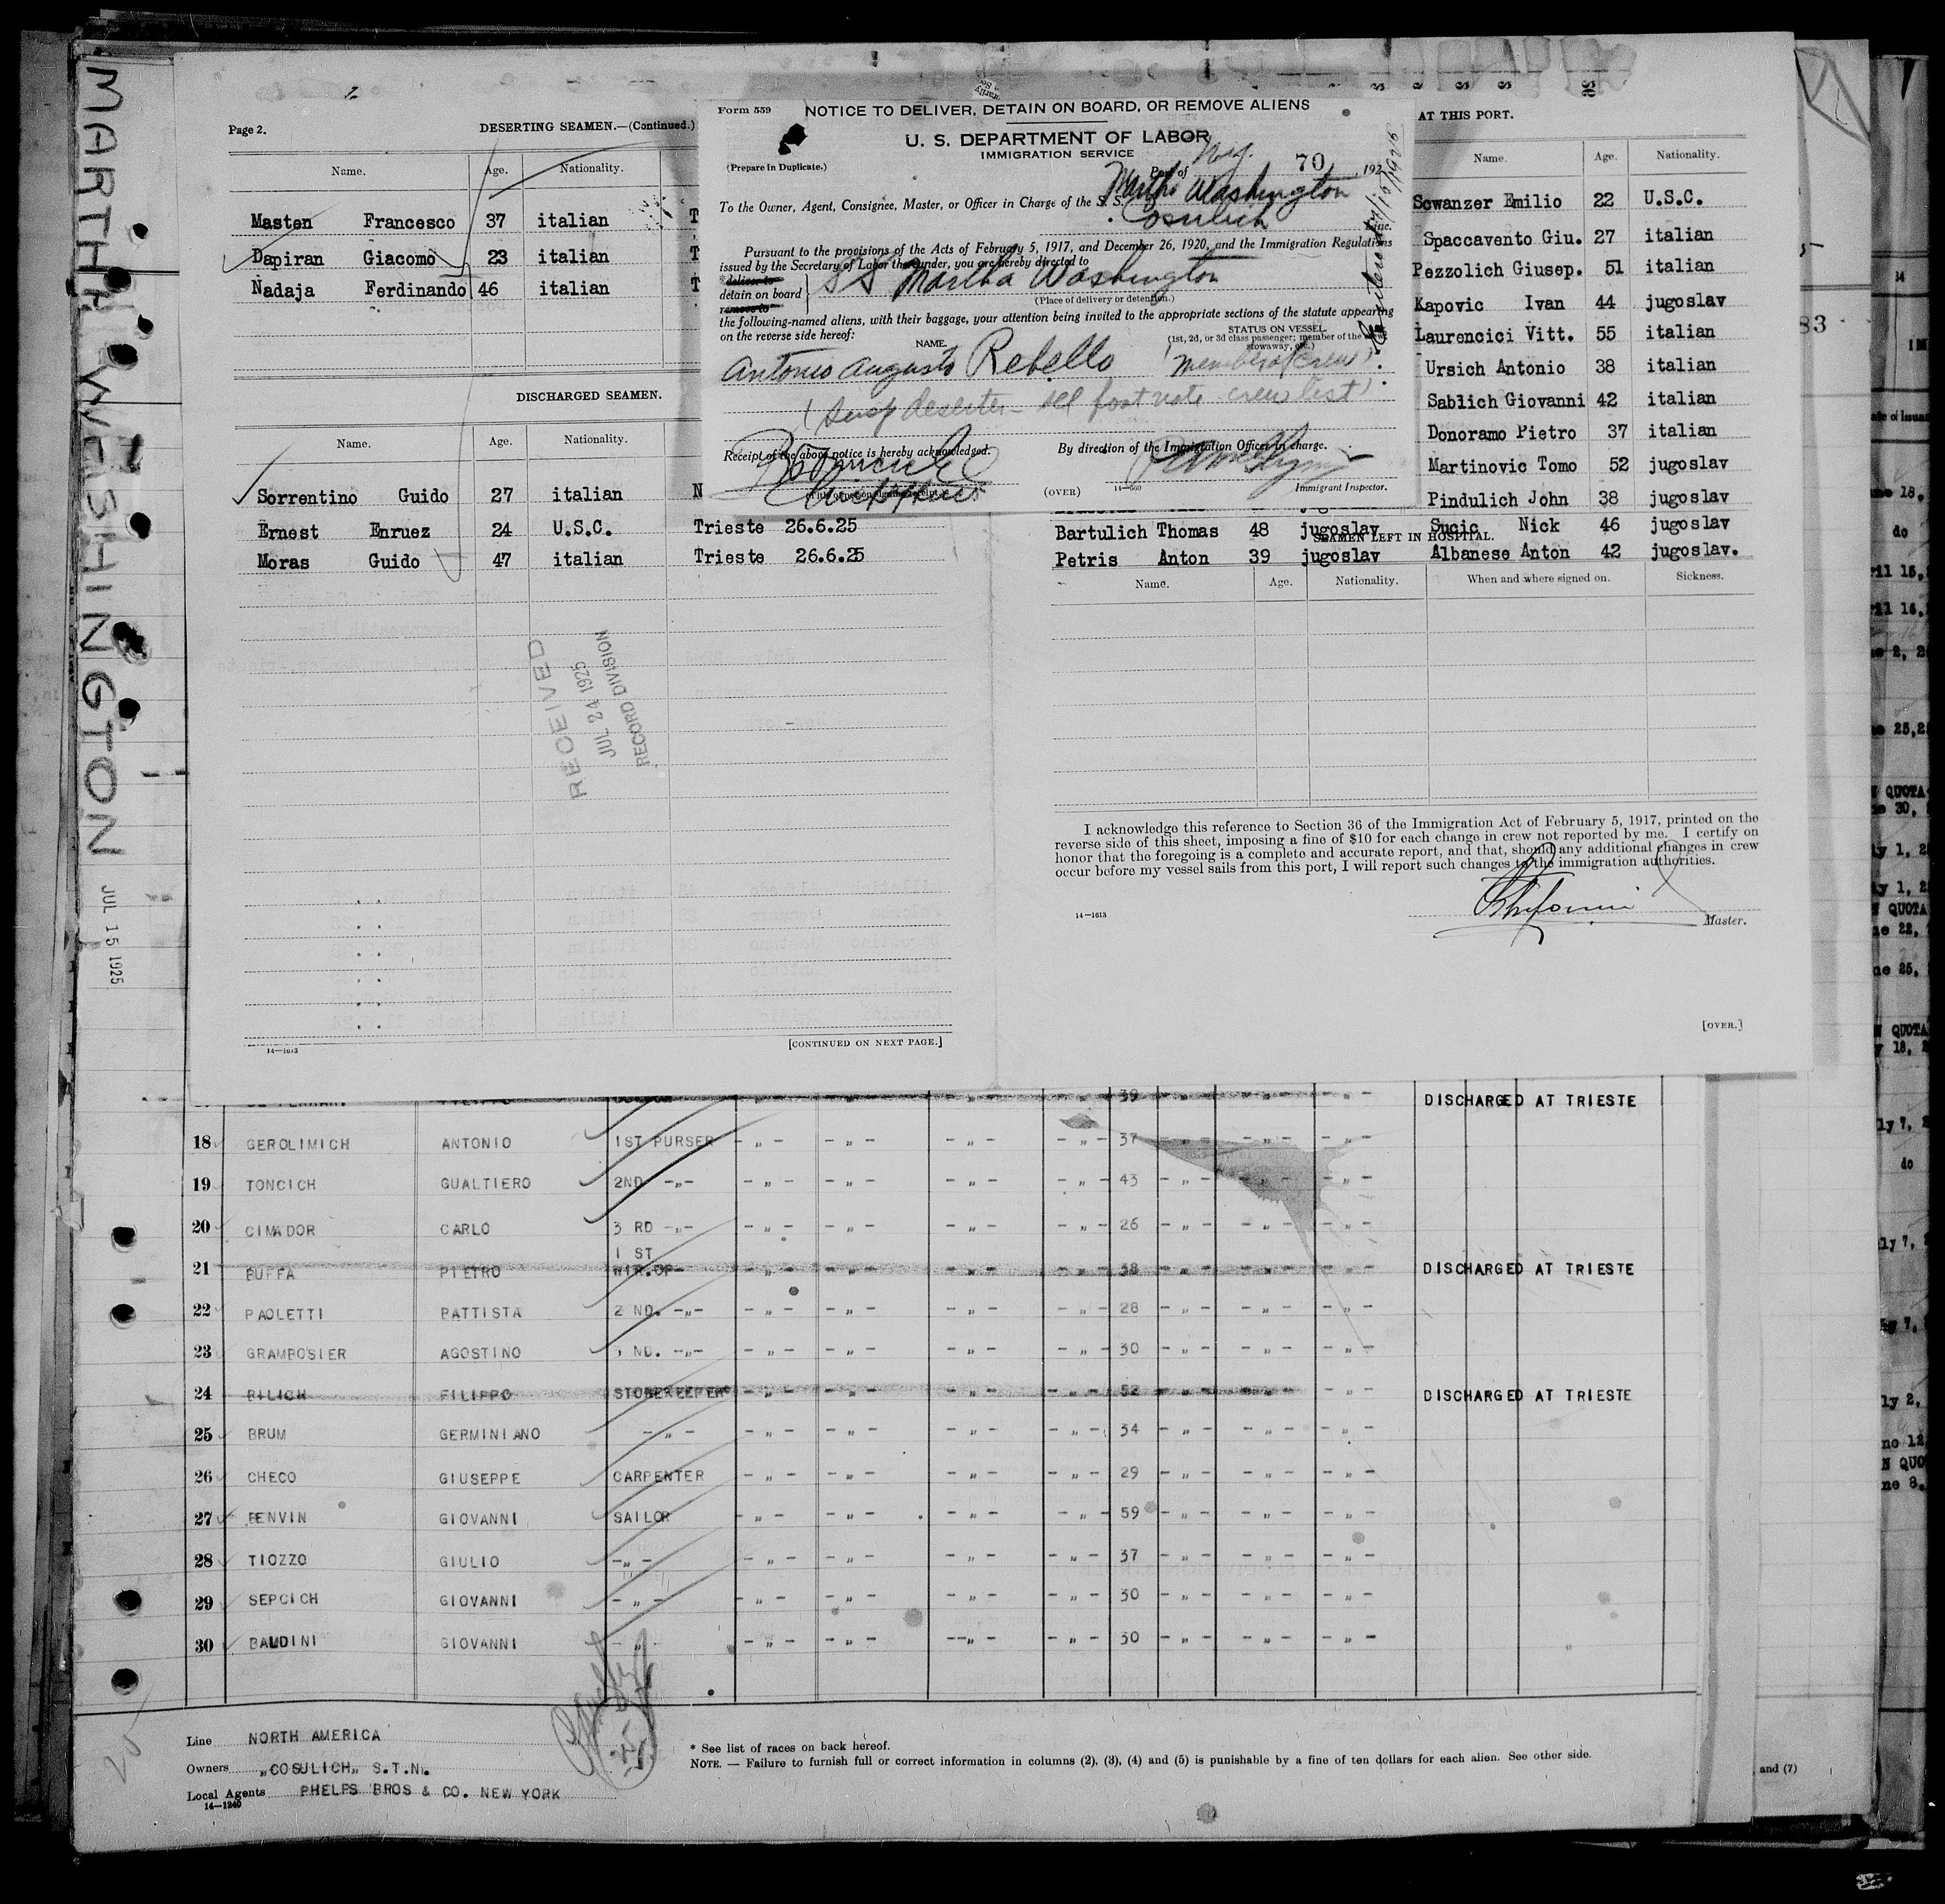 MARTHA WASHINGTON
JUL 15 1925
Page 2.
DESERTING SEAMEN.—(Continued.)
Name. Age. Nationality.
Masten Francesco 37 italian T
Dapiran Giacomo 23 italian T
Nadaja Ferdinando 46 italian T
DISCHARGED SEAMEN.
Name. Age. Nationality.
Sorrentino Guido 27 italian N
Ernest Enruez 24 U.S.C. Trieste 26.6.25
Moras Guido 47 italian Trieste 26.6.25
RECEIVED
JUL 24 1925
RECORD DIVISION
14—1613
[CONTINUED ON NEXT PAGE.]
Form 559
NOTICE TO DELIVER, DETAIN ON BOARD, OR REMOVE ALIENS
U. S. DEPARTMENT OF LABOR
IMMIGRATION SERVICE
(Prepare in Duplicate.)
Port of 70, 192
To the Owner, Agent, Consignee, Master, or Officer in Charge of the S. S. Martha Washington
Cosulich Line.
Pursuant to the provisions of the Acts of February 5, 1917, and December 26, 1920, and the Immigration Regulations
issued by the Secretary of Labor thereunder, you are hereby directed to
*deliver to
detain on board
remove to
SS Martha Washington
(Place of delivery or detention.)
the following-named aliens, with their baggage, your attention being invited to the appropriate sections of the statute appearing
on the reverse side hereof:
NAME.
STATUS ON VESSEL
(1st, 2d, or 3d class passenger; member of the crew,
stowaway, etc.)
Antonio Augusto Rebello (member of crew)
(susp deserter - see foot note crew list)
Receipt of the above notice is hereby acknowledged.
By direction of the Immigration Officer in charge.
(OVER)
14—560
Immigrant Inspector.
AT THIS PORT.
Name. Age. Nationality.
Scwanzer Emilio 22 U.S.C.
Spaccavento Giu. 27 italian
Pezzolich Giusep. 51 italian
Kapovic Ivan 44 jugoslav
Laurencici Vitt. 55 italian
Ursich Antonio 38 italian
Sablich Giovanni 42 italian
Donoramo Pietro 37 italian
Martinovic Tomo 52 jugoslav
Pindulich John 38 jugoslav
Bartulich Thomas 48 jugoslav Sucic Nick 46 jugoslav
SEAMEN LEFT IN HOSPITAL.
Petris Anton 39 jugoslav Albanese Anton 42 jugoslav.
Name. Age. Nationality. When and where signed on. Sickness.
I acknowledge this reference to Section 36 of the Immigration Act of February 5, 1917, printed on the
reverse side of this sheet, imposing a fine of $10 for each change in crew not reported by me. I certify on
honor that the foregoing is a complete and accurate report, and that, should any additional changes in crew
occur before my vessel sails from this port, I will report such changes to the immigration authorities.
14—1613
Master.
[OVER.]
39 DISCHARGED AT TRIESTE
18 GEROLIMICH ANTONIO 1ST PURSER - „ - - „ - - „ - - „ - 37 - „ - - „ - - „ -
19 TONCICH GUALTIERO 2ND -„- - „ - - „ - - „ - - „ - 43 - „ - - „ - - „ -
20 CIMADOR CARLO 3 RD -„- - „ - - „ - - „ - - „ - 26 - „ - - „ - - „ -
21 BUFFA PIETRO 1 ST WIR.OP- - „ - - „ - - „ - - „ - 38 - „ - - „ - - „ - DISCHARGED AT TRIESTE
22 PAOLETTI BATTISTA 2 ND. -„- - „ - - „ - - „ - - „ - 28 - „ - - „ - - „ -
23 GRAMBOSIER AGOSTINO 3 ND. -„- - „ - - „ - - „ - - „ - 30 - „ - - „ - - „ -
24 BILICH FILIPPO STOREKEEPER - „ - - „ - - „ - - „ - 52 - „ - - „ - - „ - DISCHARGED AT TRIESTE
25 BRUM GERMINIANO - „ - - „ - - „ - - „ - - „ - 34 - „ - - „ - - „ -
26 CHECO GIUSEPPE CARPENTER - „ - - „ - - „ - - „ - 29 - „ - - „ - - „ -
27 BENVIN GIOVANNI SAILOR - „ - - „ - - „ - - „ - 59 - „ - - „ - - „ -
28 TIOZZO GIULIO -„- - „ - - „ - - „ - - „ - 37 - „ - - „ - - „ -
29 SEPCICH GIOVANNI - „ - - „ - - „ - - „ - - „ - 30 - „ - - „ - - „ -
30 BALDINI GIOVANNI - „ - - „ - - „ - - „ - - „ - 30 - „ - - „ - - „ -
Line NORTH AMERICA
Owners „COSULICH„ S.T.N.
Local Agents PHELPS BROS & CO. NEW YORK
14—1240
* See list of races on back hereof.
NOTE. — Failure to furnish full or correct information in columns (2), (3), (4) and (5) is punishable by a fine of ten dollars for each alien. See other side.
and (7)